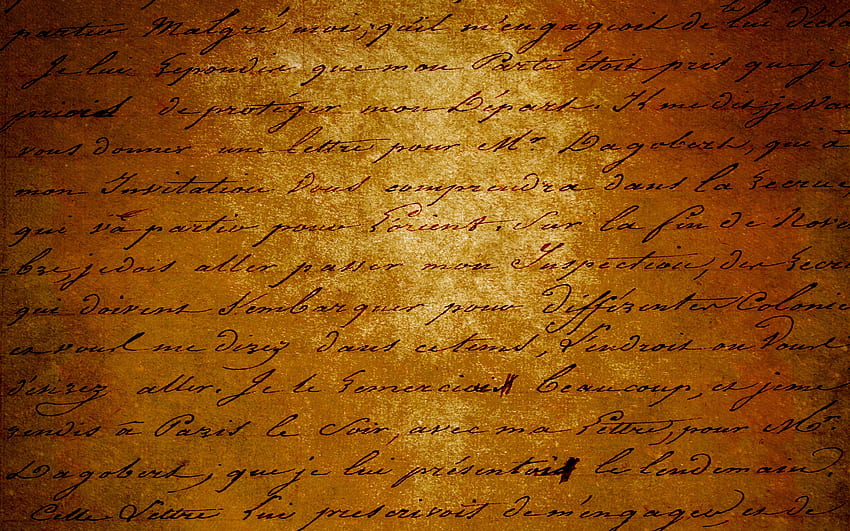 partir Malgré moi; qu'il m'engageoit de lui décla
Je lui Repondis que mon Parti étoit pris que je
priois de protéger mon Départ. Il me dit, je va
vous donner une lettre pour Mr. Dagobert, qui à
mon Invitation Vous comprendra dans la Recrue,
qui va partir pour Lorient. Sur la fin de Nove
=bre, je dois aller passer mon Inspection, des Recru
qui doivent S'embarquer pour différentes Colonie
et vous me direz dans ce tems, L'endroit ou Vous
désirez aller. Je le Remerciai beaucoup, et je me
rendis à Paris le Soir, avec ma Lettre, pour Mr.
Dagobert; que je lui présentai le lendemain.
Cette Lettre Lui prescrivoit de m'engager, et de